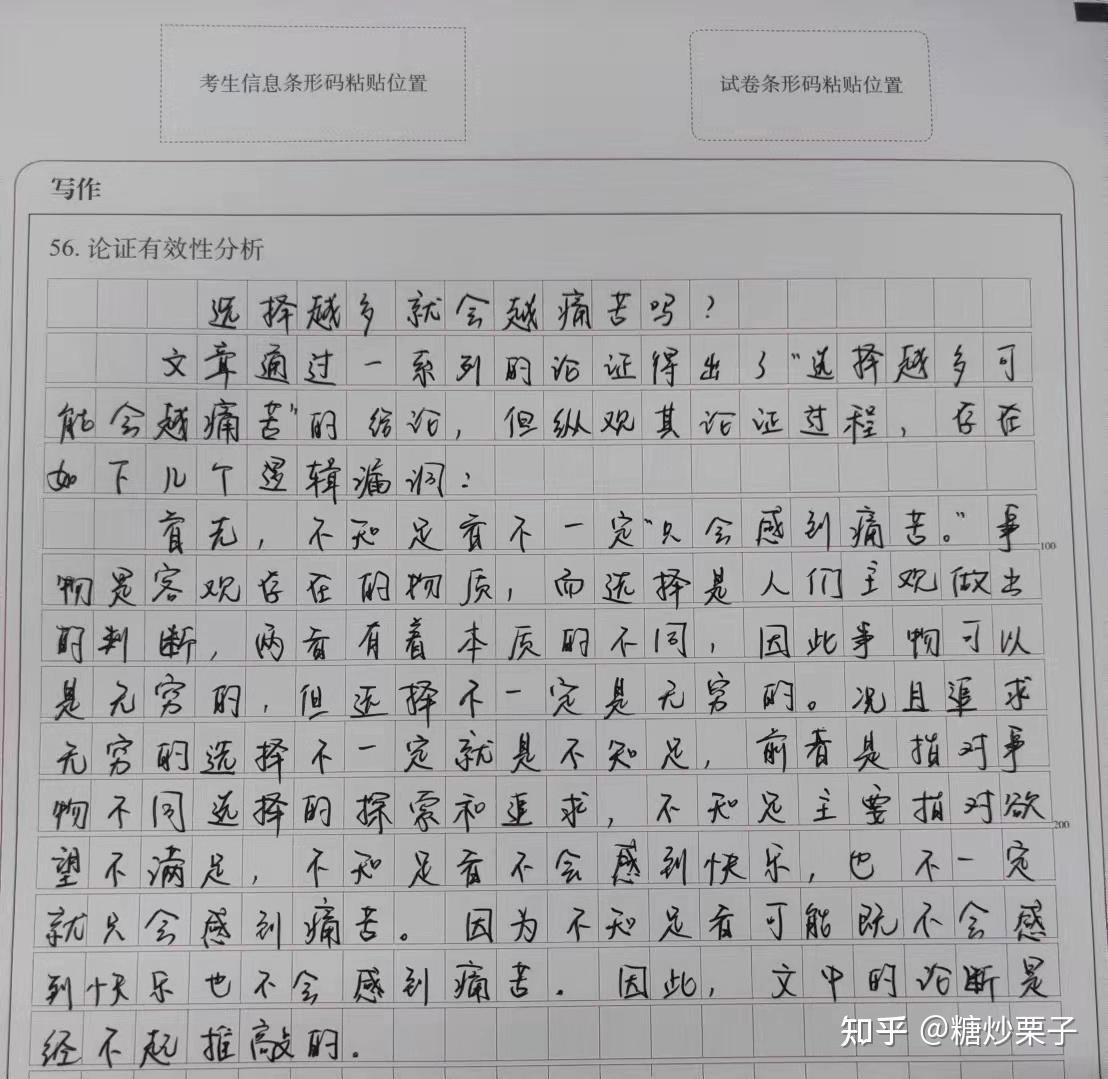 考生信息条形码粘贴位置
试卷条形码粘贴位置
写作
56. 论证有效性分析
选择越多就会越痛苦吗？
文章通过一系列的论证得出了“选择越多可
能会越痛苦”的结论，但纵观其论证过程，存在
如下几个逻辑漏洞：
首先，不知足者不一定“只会感到痛苦。”事
100
物是客观存在的物质，而选择是人们主观做出
的判断，两者有着本质的不同，因此事物可以
是无穷的，但选择不一定是无穷的。况且追求
无穷的选择不一定就是不知足，前者是指对事
物不同选择的探索和追求，不知足主要指对欲
200
望不满足，不知足者不会感到快乐，也不一定
就只会感到痛苦。因为不知足者可能既不会感
到快乐也不会感到痛苦。因此，文中的论断是
经不起推敲的。
知乎 @糖炒栗子